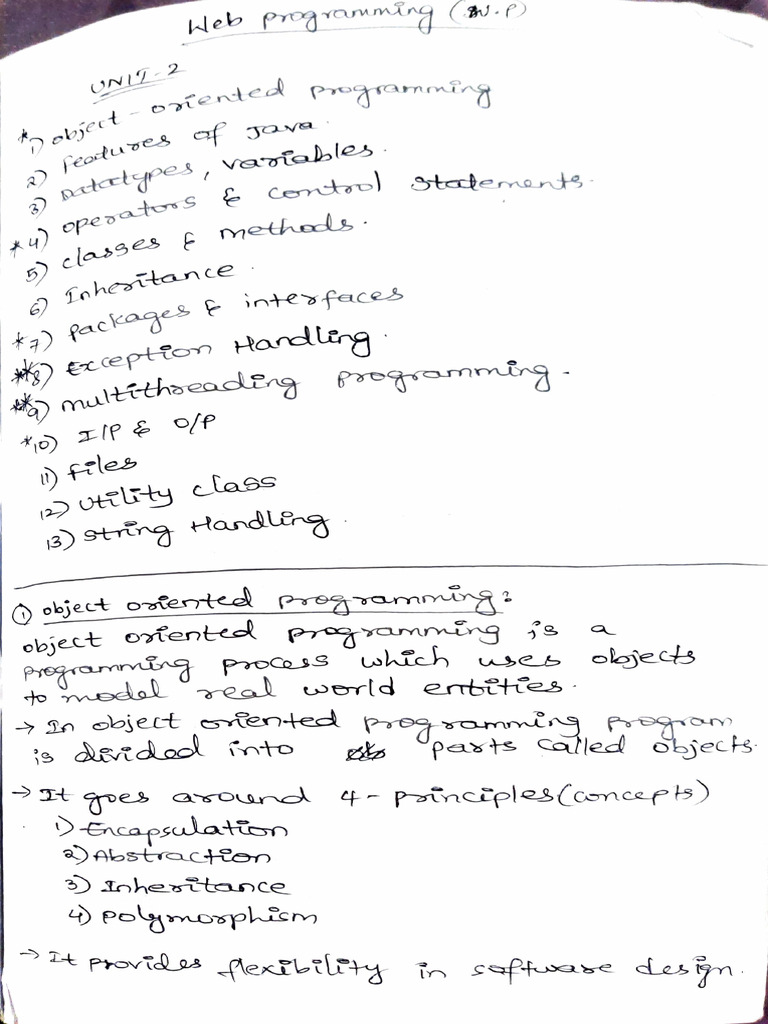 Web programming (W.P)
UNIT-2
*1) object-oriented programming
2) features of Java.
3) Datatypes, variables.
*4) operators & control statements.
5) classes & methods.
6) Inheritance.
*7) packages & interfaces
**8) Exception Handling.
**9) multithreading programming.
*10) I/P & O/P
11) files
12) Utility class
13) string Handling.
① object oriented programming:
object oriented programming is a
programming process which uses objects
to model real world entities.
→ In object oriented programming program
is divided into parts called objects.
→ It goes around 4-principles(concepts)
1) Encapsulation
2) Abstraction
3) Inheritance
4) polymorphism
→ It provides flexibility in software design.